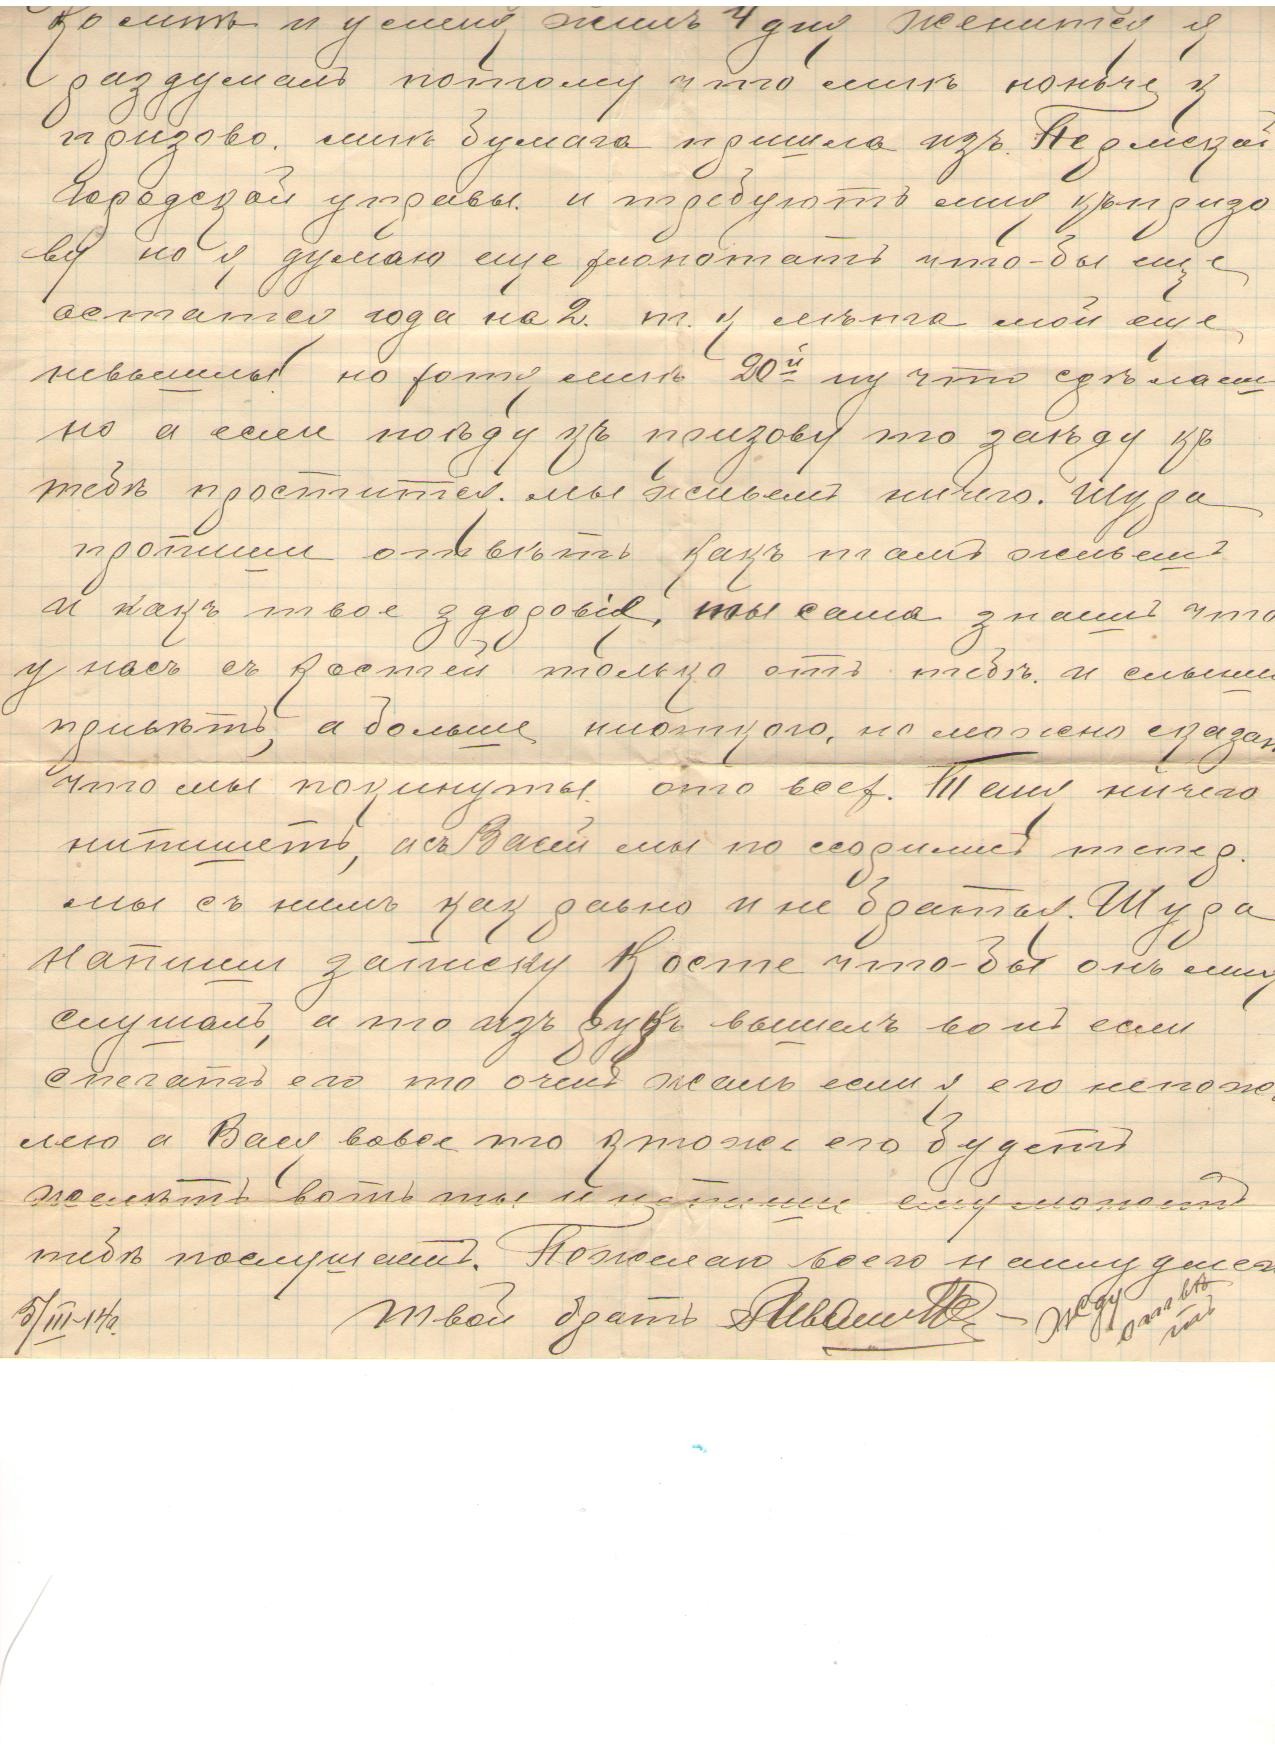 ко мнѣ и у меня жилъ 4 дня женится я
раздумалъ потому что мнѣ нонѣче к
призово. мнѣ бумага пришла изъ. Пермской
Городской управы. и требуютъ мня къ призо
ву но я думаю еще хлопотать что-бы еще
остатся года на 2. т. к лѣта мои еще
невышлы но хотя мнѣ 20й ну что сдѣлаеш
но а если поѣду къ призову то заѣду къ
тебѣ простится. мы живемъ ничего. Шура
пропиши отвѣтъ какъ тамъ живешь
и какъ твое здоровіе, ты сама знашь что
у насъ съ Костей только отъ тебѣ. и слыши
привѣтъ, а больше ниоткого, но можно сказат
что мы покинуты. ото всех. Теня ничего
нипишетъ, а съ Васей мы по ссорились тепер.
мы съ нимъ как равно и не братья. Шура
Напиши записку Косте что-бы онъ мня
слушалъ, а то изъ рукъ вышелъ вонъ если
спечатъ его то очень жаль если я его непожа
лею а Вася вовсе то ктоже его будетъ
жалѣть вотъ ты и нспиши ему можетъ
тебѣ послушаетъ. Пожелаю всего наилудшего
5/III-14г. Твой братъ Жду
отвѣ
тъ